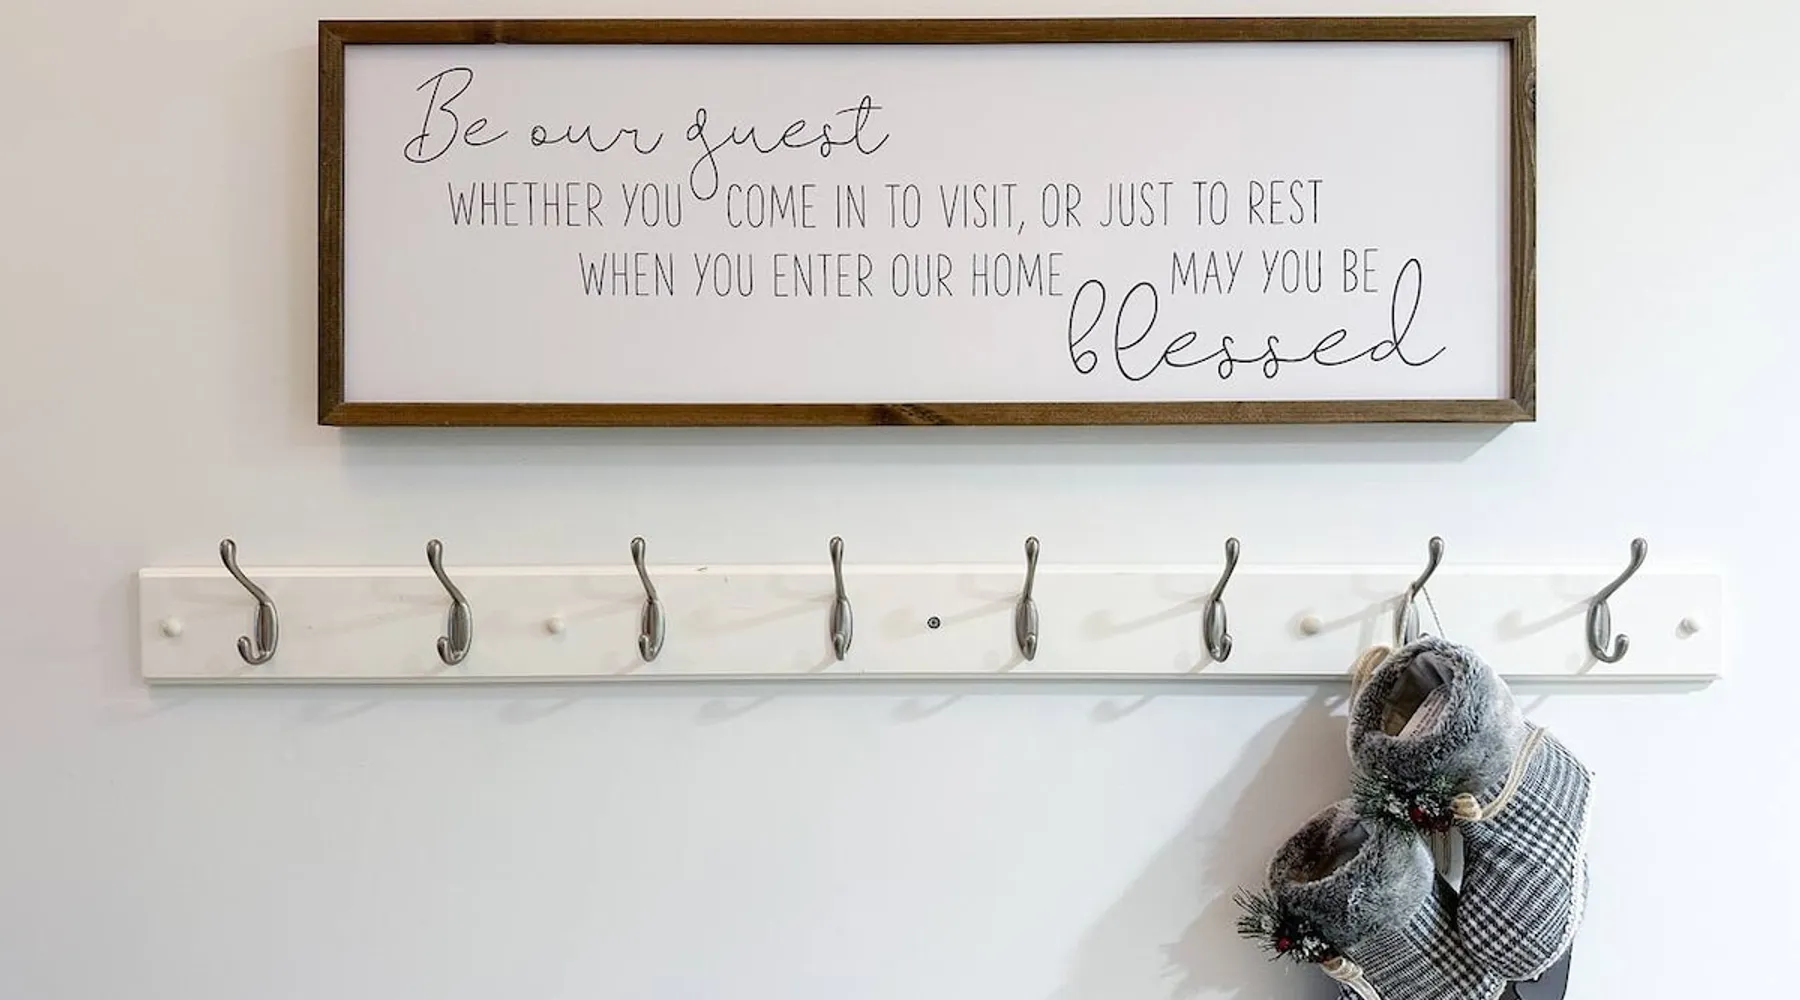 Be our guest
WHETHER YOU COME IN TO VISIT, OR JUST TO REST
WHEN YOU ENTER OUR HOME MAY YOU BE
blessed